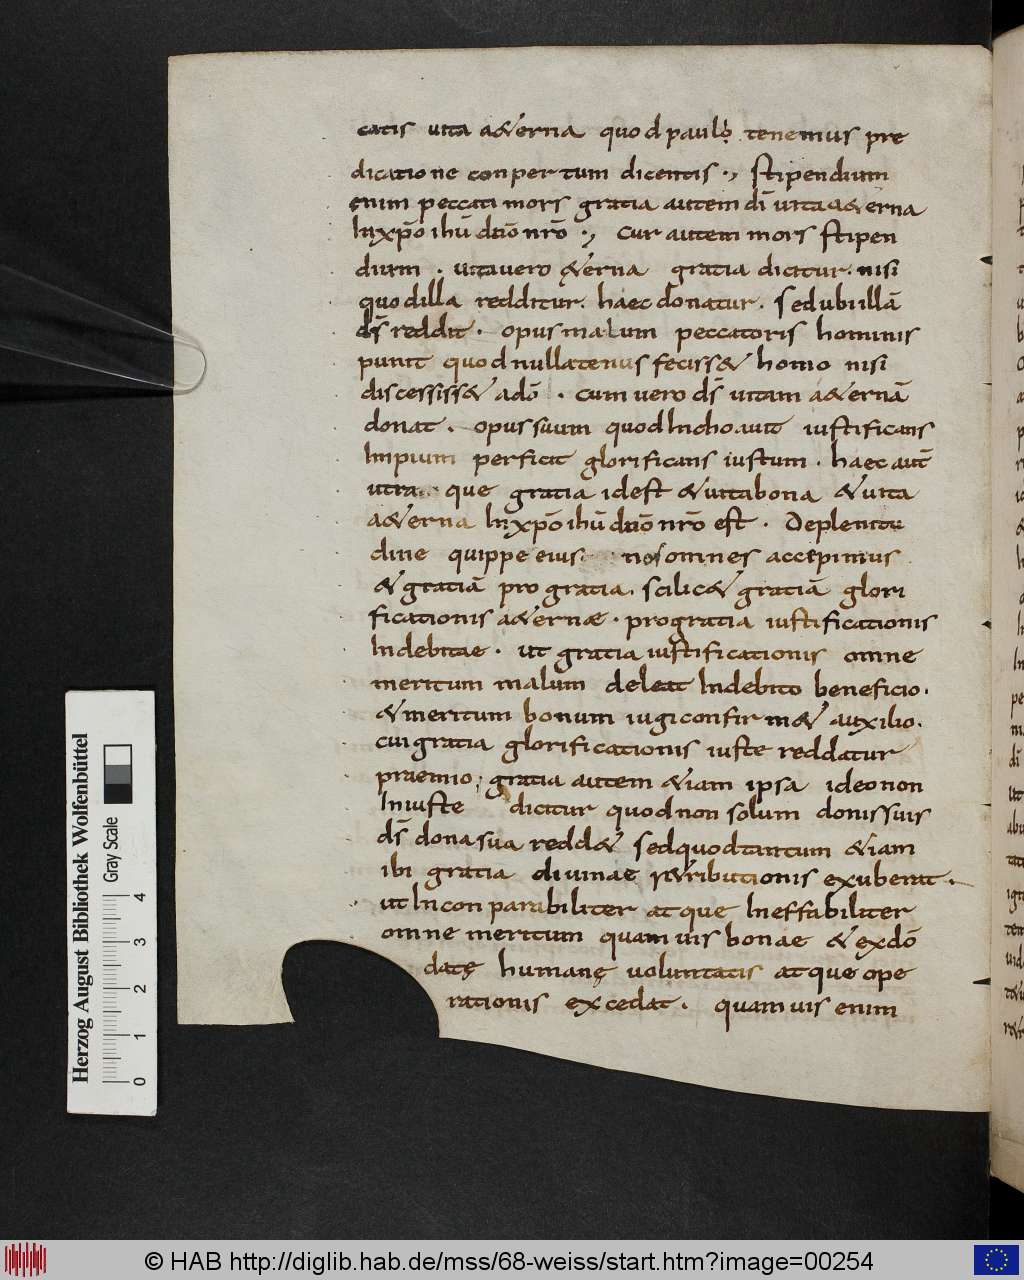 catis uita a&erna quod paulo tenemus pre
dicatione conpertum dicentis ·, stipendium
enim peccati mors gratia autem dī uita a&erna
In xp̄o ihū dn̄o nr̄o ·, cur autem mors stipen
dium · uita uero &erna gratia dicitur · nisi
quod illa redditur · haec donatur · sed ubi illā
dr̄ reddit · opus malum peccatoris hominis
punit quod nullatenus feciss& homo nisi
discessiss& a dō · cum uero ds̄ uitam a&ernā
donat · opus suum quod Inchoauit iustificans
Impium perficit glorificans iustum · haec aut̄
utra que gratia id est & uita bona & uita
a&erna In xp̄o ihū dn̄o nr̄o est · De plenitu
dine quippe eius nos omnes accepimus
& gratiā pro gratia · scilic& gratiā glori
ficationis a&ernae · pro gratia iustificationis
Indebitae · ut gratia iustificationis omne
meritum malum deleat Indebito beneficio ·
& meritum bonum iugi confirm& auxilio ·
cui gratia glorificationis iuste reddatur
praemio ; gratia autem &iam ipsa ideo non
Iniuste dicitur quod non solum donis suis
ds̄ dona sua redd& sed quod tantum &iam
ibi gratia diuinae r&ributionis exuberat ·
ut Inconparabiliter atque Ineffabiliter
omne meritum quamuis bonae & ex dō
datę humanę uoluntatis atque ope
rationis excedat · quamuis enim
Herzog August Bibliothek Wolfenbüttel
Gray Scale
0 1 2 3 4
© HAB http://diglib.hab.de/mss/68-weiss/start.htm?image=00254